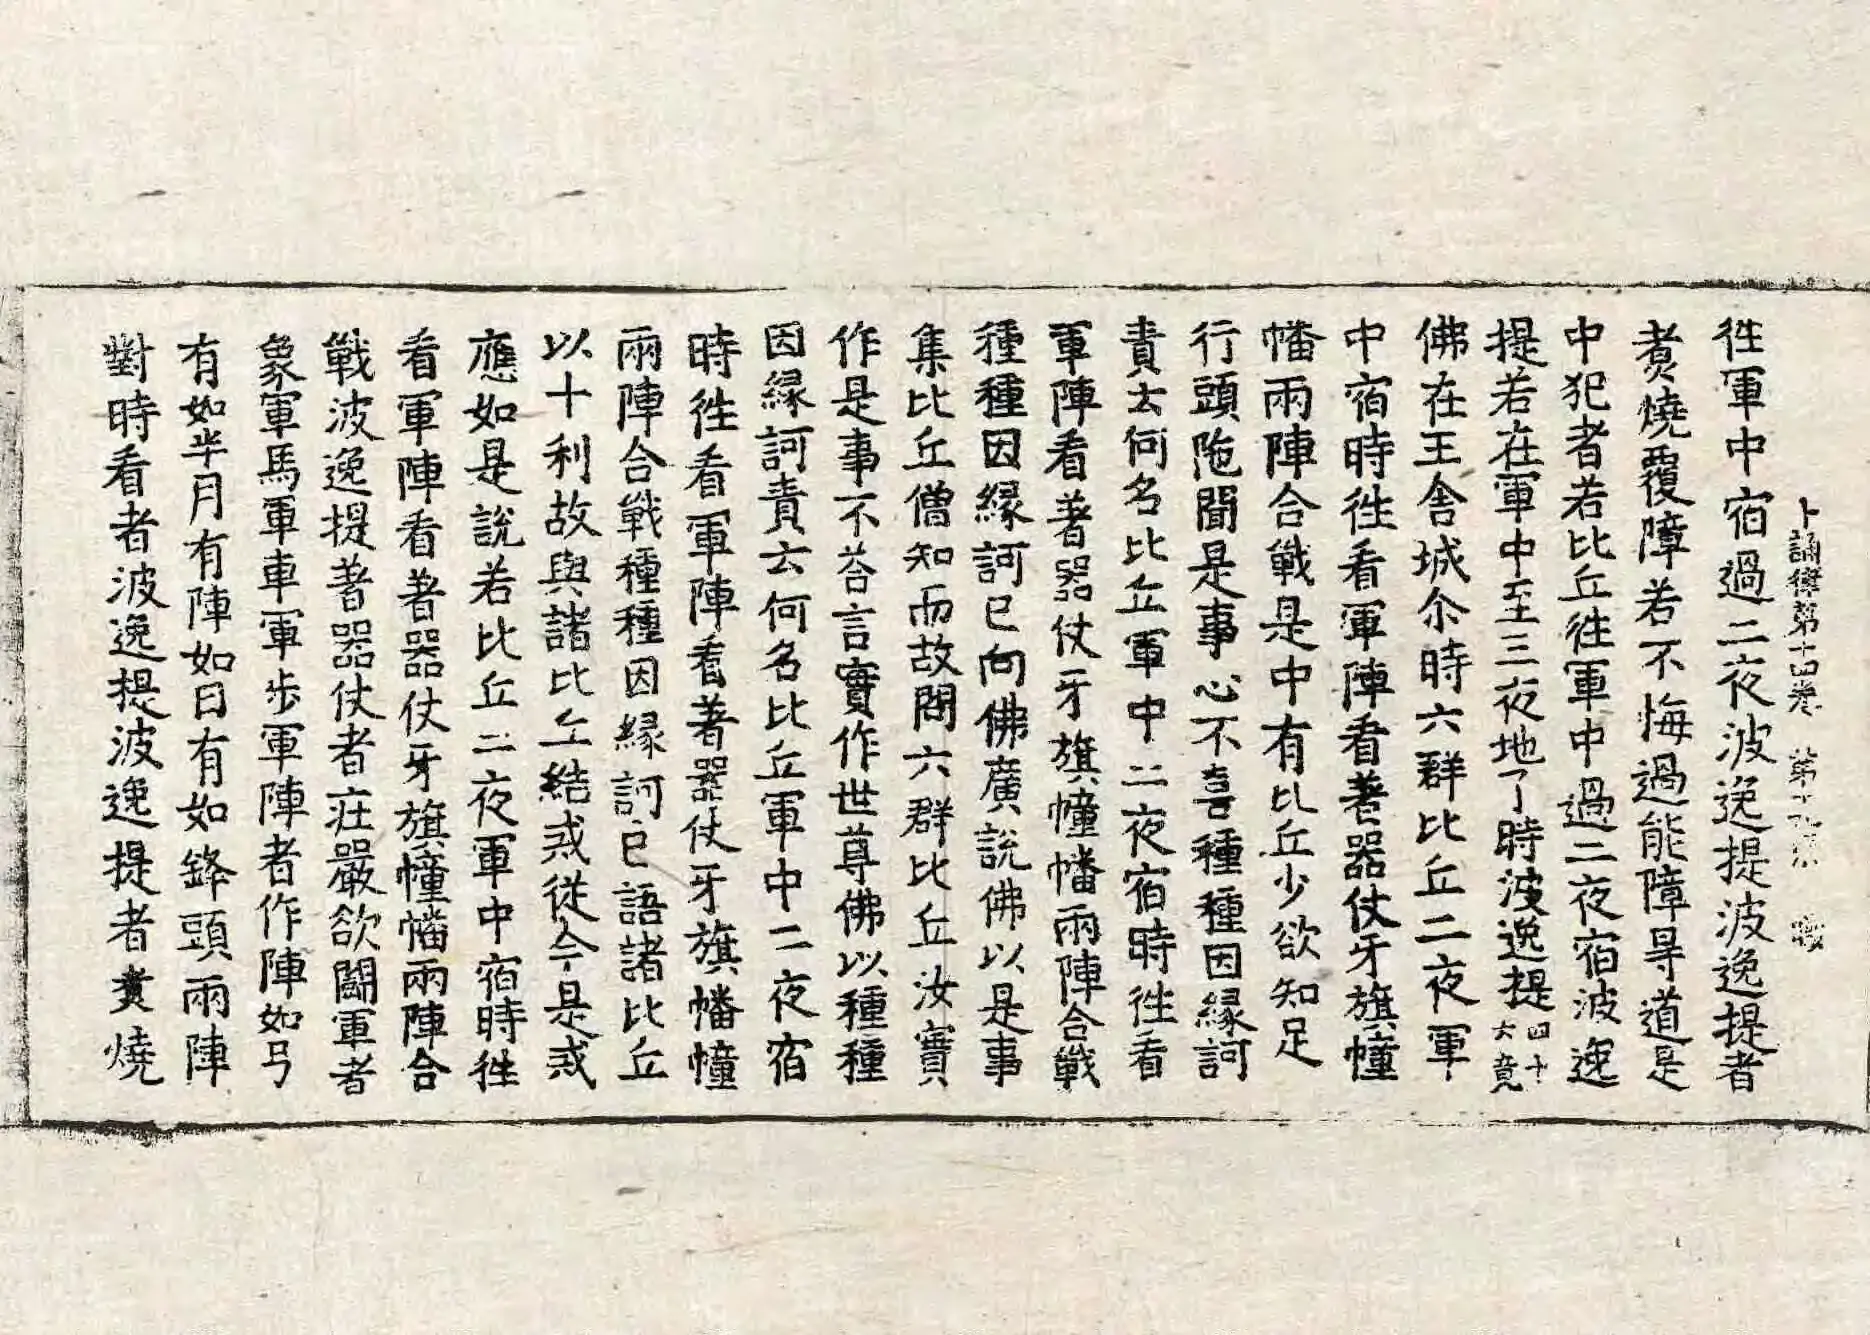 十誦律第十四卷 第十九張
徃軍中宿過二夜波逸提波逸提者
煑燒覆障若不悔過能障㝵道是
中犯者若比丘徃軍中過二夜宿波逸
提若在軍中至三夜地了時波逸提四十六竟
佛在王舍城尒時六群比丘二夜軍
中宿時徃看軍陣看著器仗牙旗幢
幡兩陣合戰是中有比丘少欲知足
行頭陁聞是事心不喜種種因緣訶
責云何名比丘軍中二夜宿時徃看
軍陣看著器仗牙旗幢幡兩陣合戰
種種因緣訶已向佛廣說佛以是事
集比丘僧知而故問六群比丘汝實
作是事不荅言實作世尊佛以種種
因緣訶責云何名比丘軍中二夜宿
時徃看軍陣看著器仗牙旗幡幢
兩陣合戰種種因緣訶已語諸比丘
以十利故與諸比丘結戒從今是戒
應如是說若比丘二夜軍中宿時徃
看軍陣看著器仗牙旗幢幡兩陣合
戰波逸提著器仗者莊嚴欲鬪軍者
象軍馬軍車軍步軍陣者作陣如弓
有如半月有陣如日有如鋒頭兩陣
對時看者波逸提波逸提者煑燒